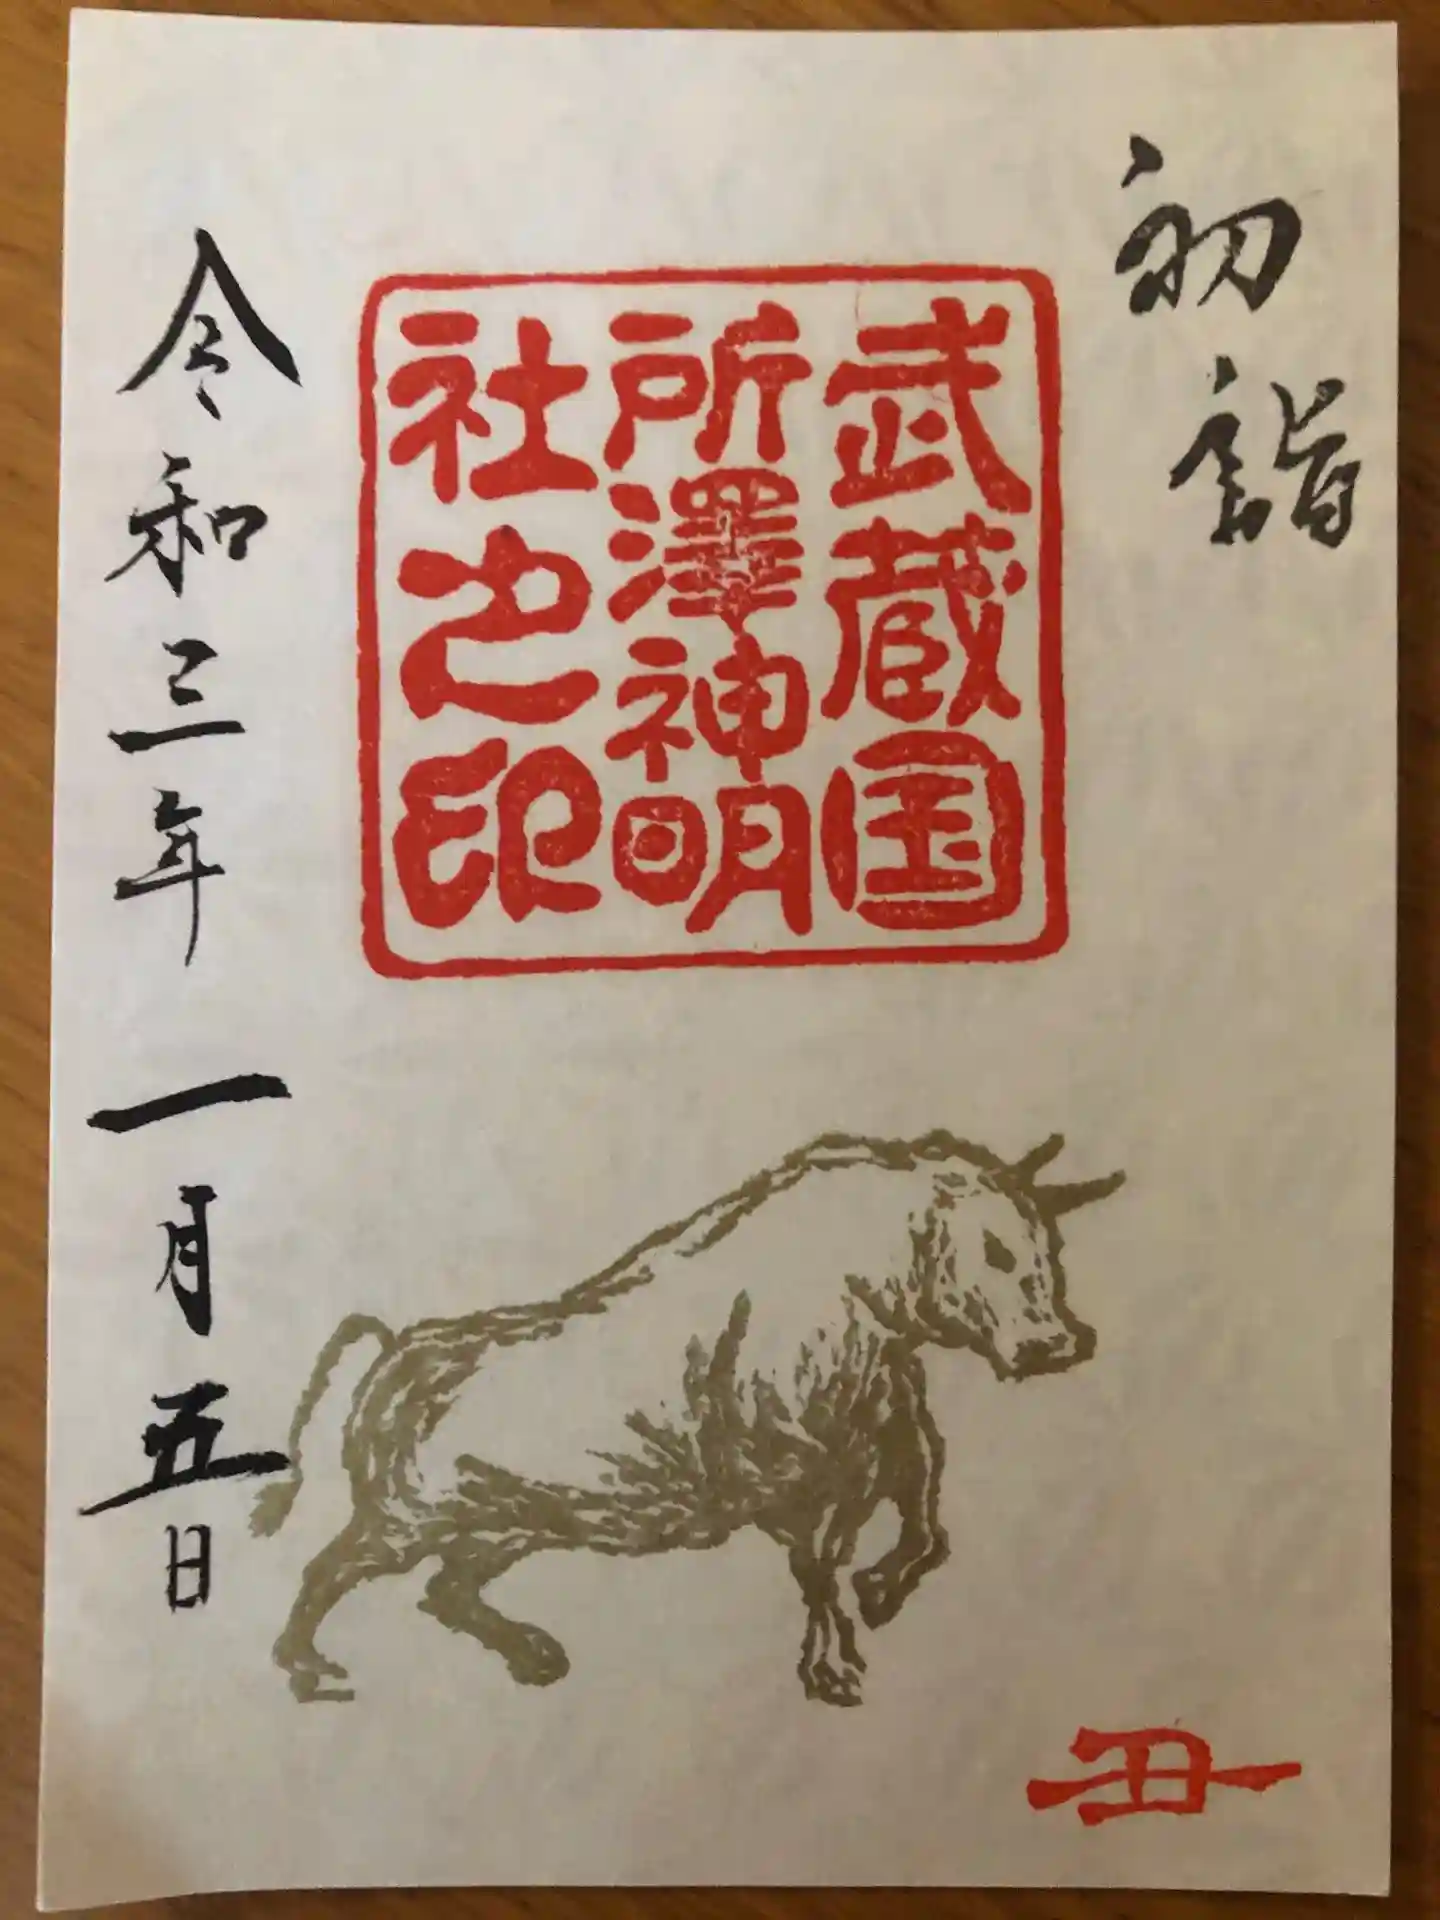 初詣
武蔵国
所澤神明
社之印
令和三年一月五日
丑